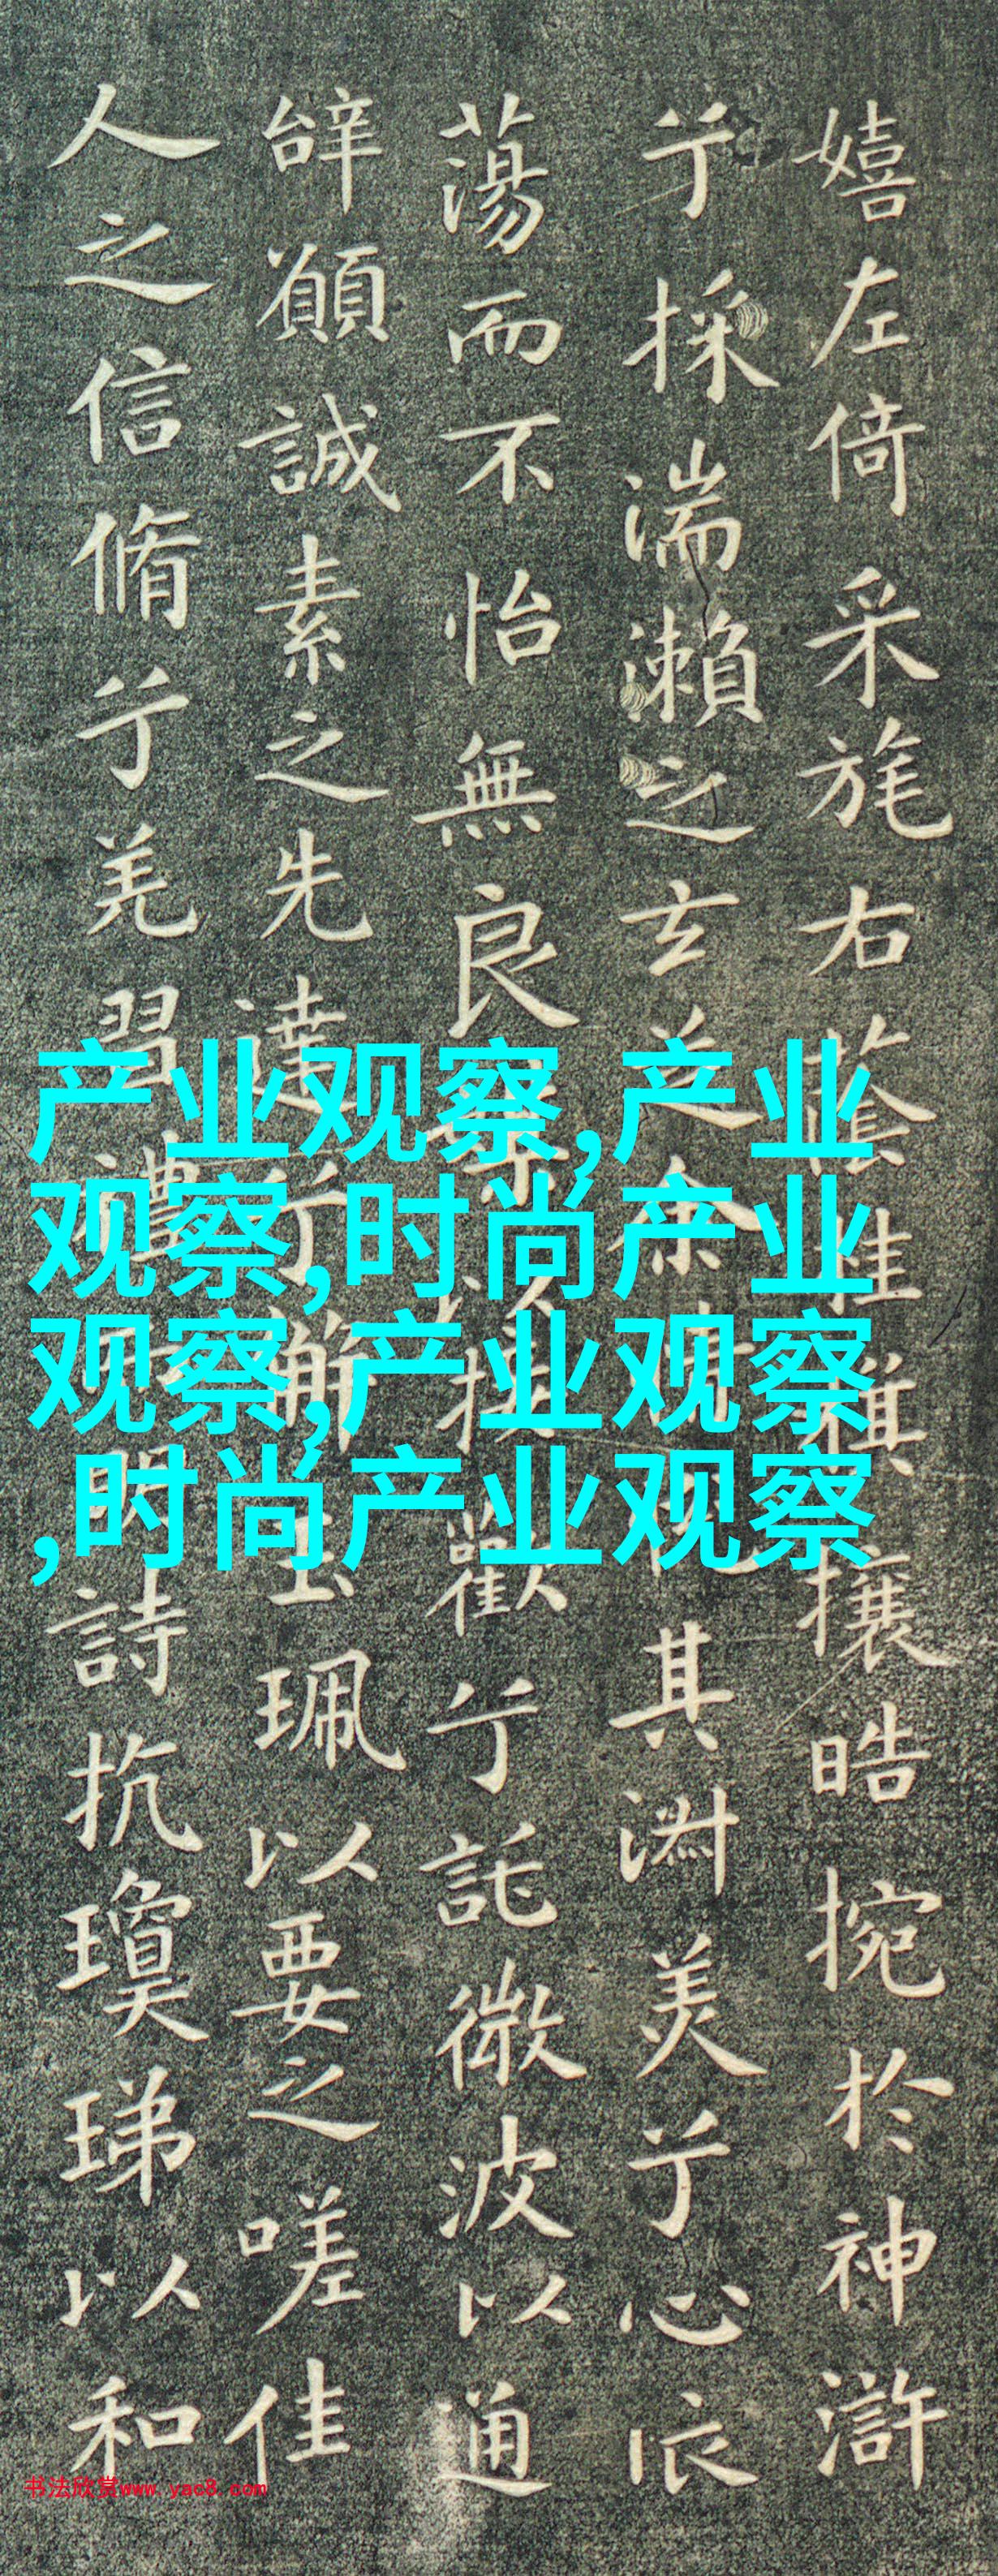 嬉左倚采旄右蔭桂旗攘皓捥於神滸
兮採湍瀨之玄芝余情悅其淑美兮心振
蕩而不怡無良媒以接歡兮託微波以通
辭願誠素之先達兮解玉珮以要之嗟佳
人之信脩兮羌習禮而明詩抗瓊珶以和
产业观察,产业
观察,时尚产业
观察,产业观察
,时尚产业观察
书法欣赏www.yac8.com